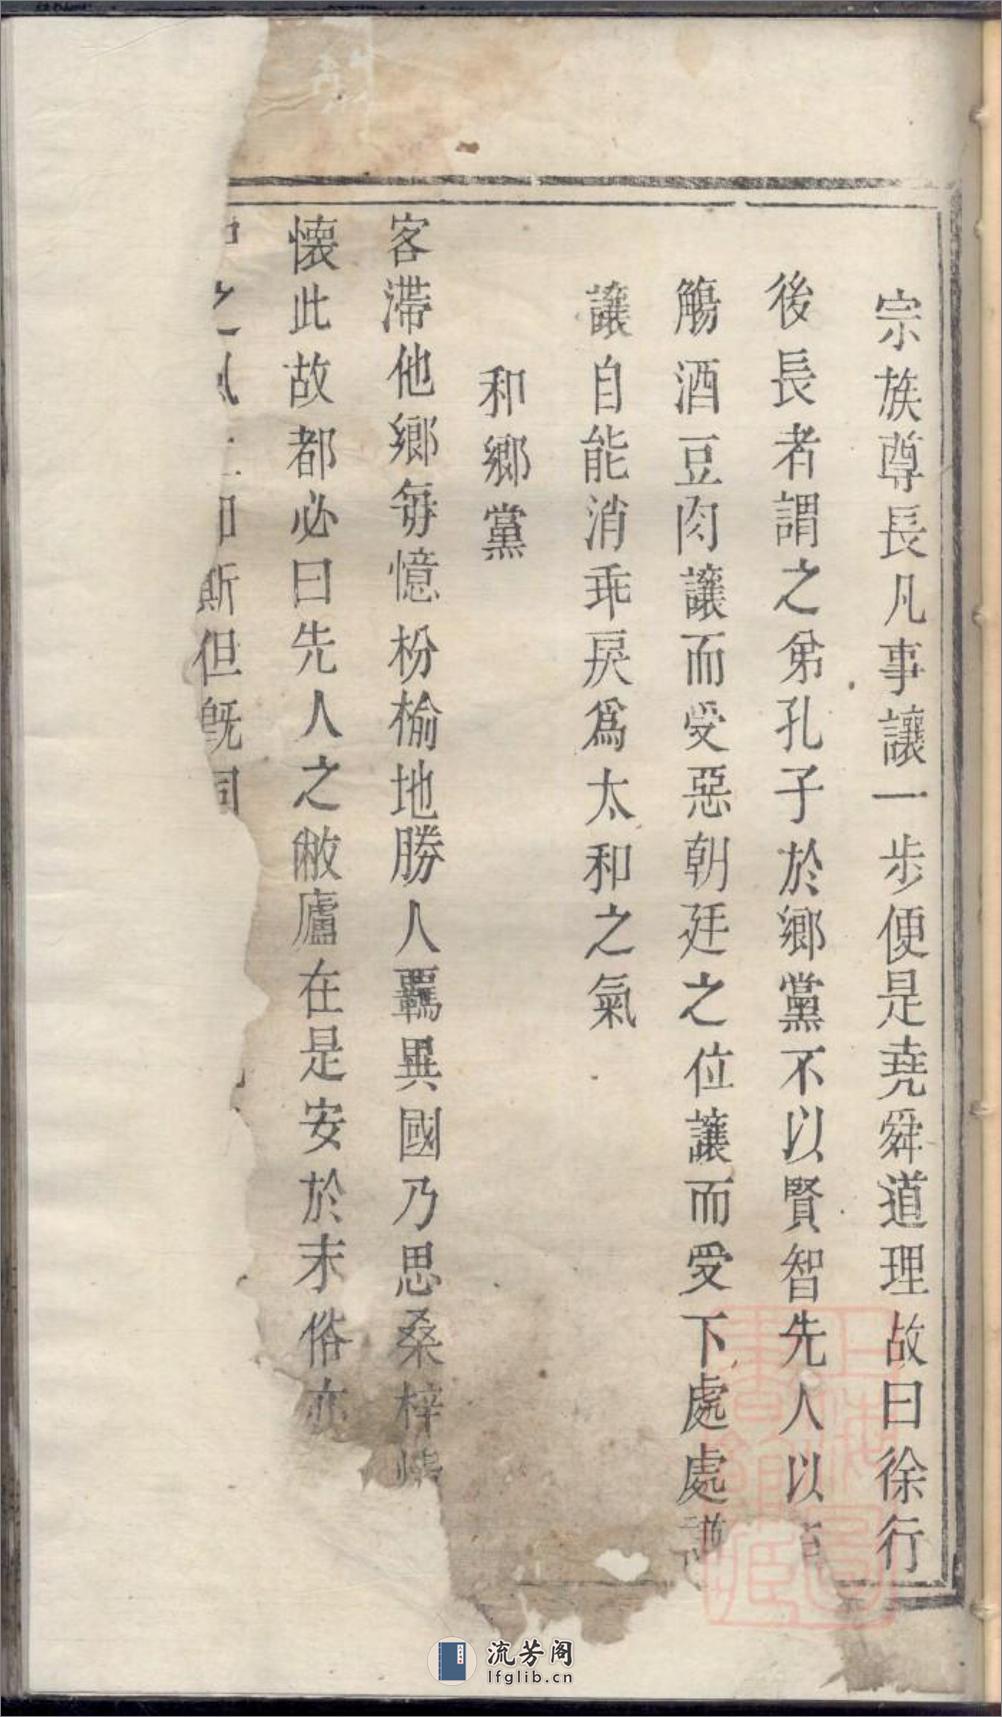 宗族尊長凡事讓一步便是堯舜道理故曰徐行
後長者謂之弟孔子於鄉黨不以賢智先人以
觴酒豆肉讓而受惡朝廷之位讓而受下處處
讓自能消乖戾爲太和之氣
和鄉黨
客滯他鄉每憶枌榆地勝人羈異國乃思桑梓情
懷此故都必曰先人之敝廬在是安於末俗亦
之
斯但既同
流芳阁
lfglib.cn